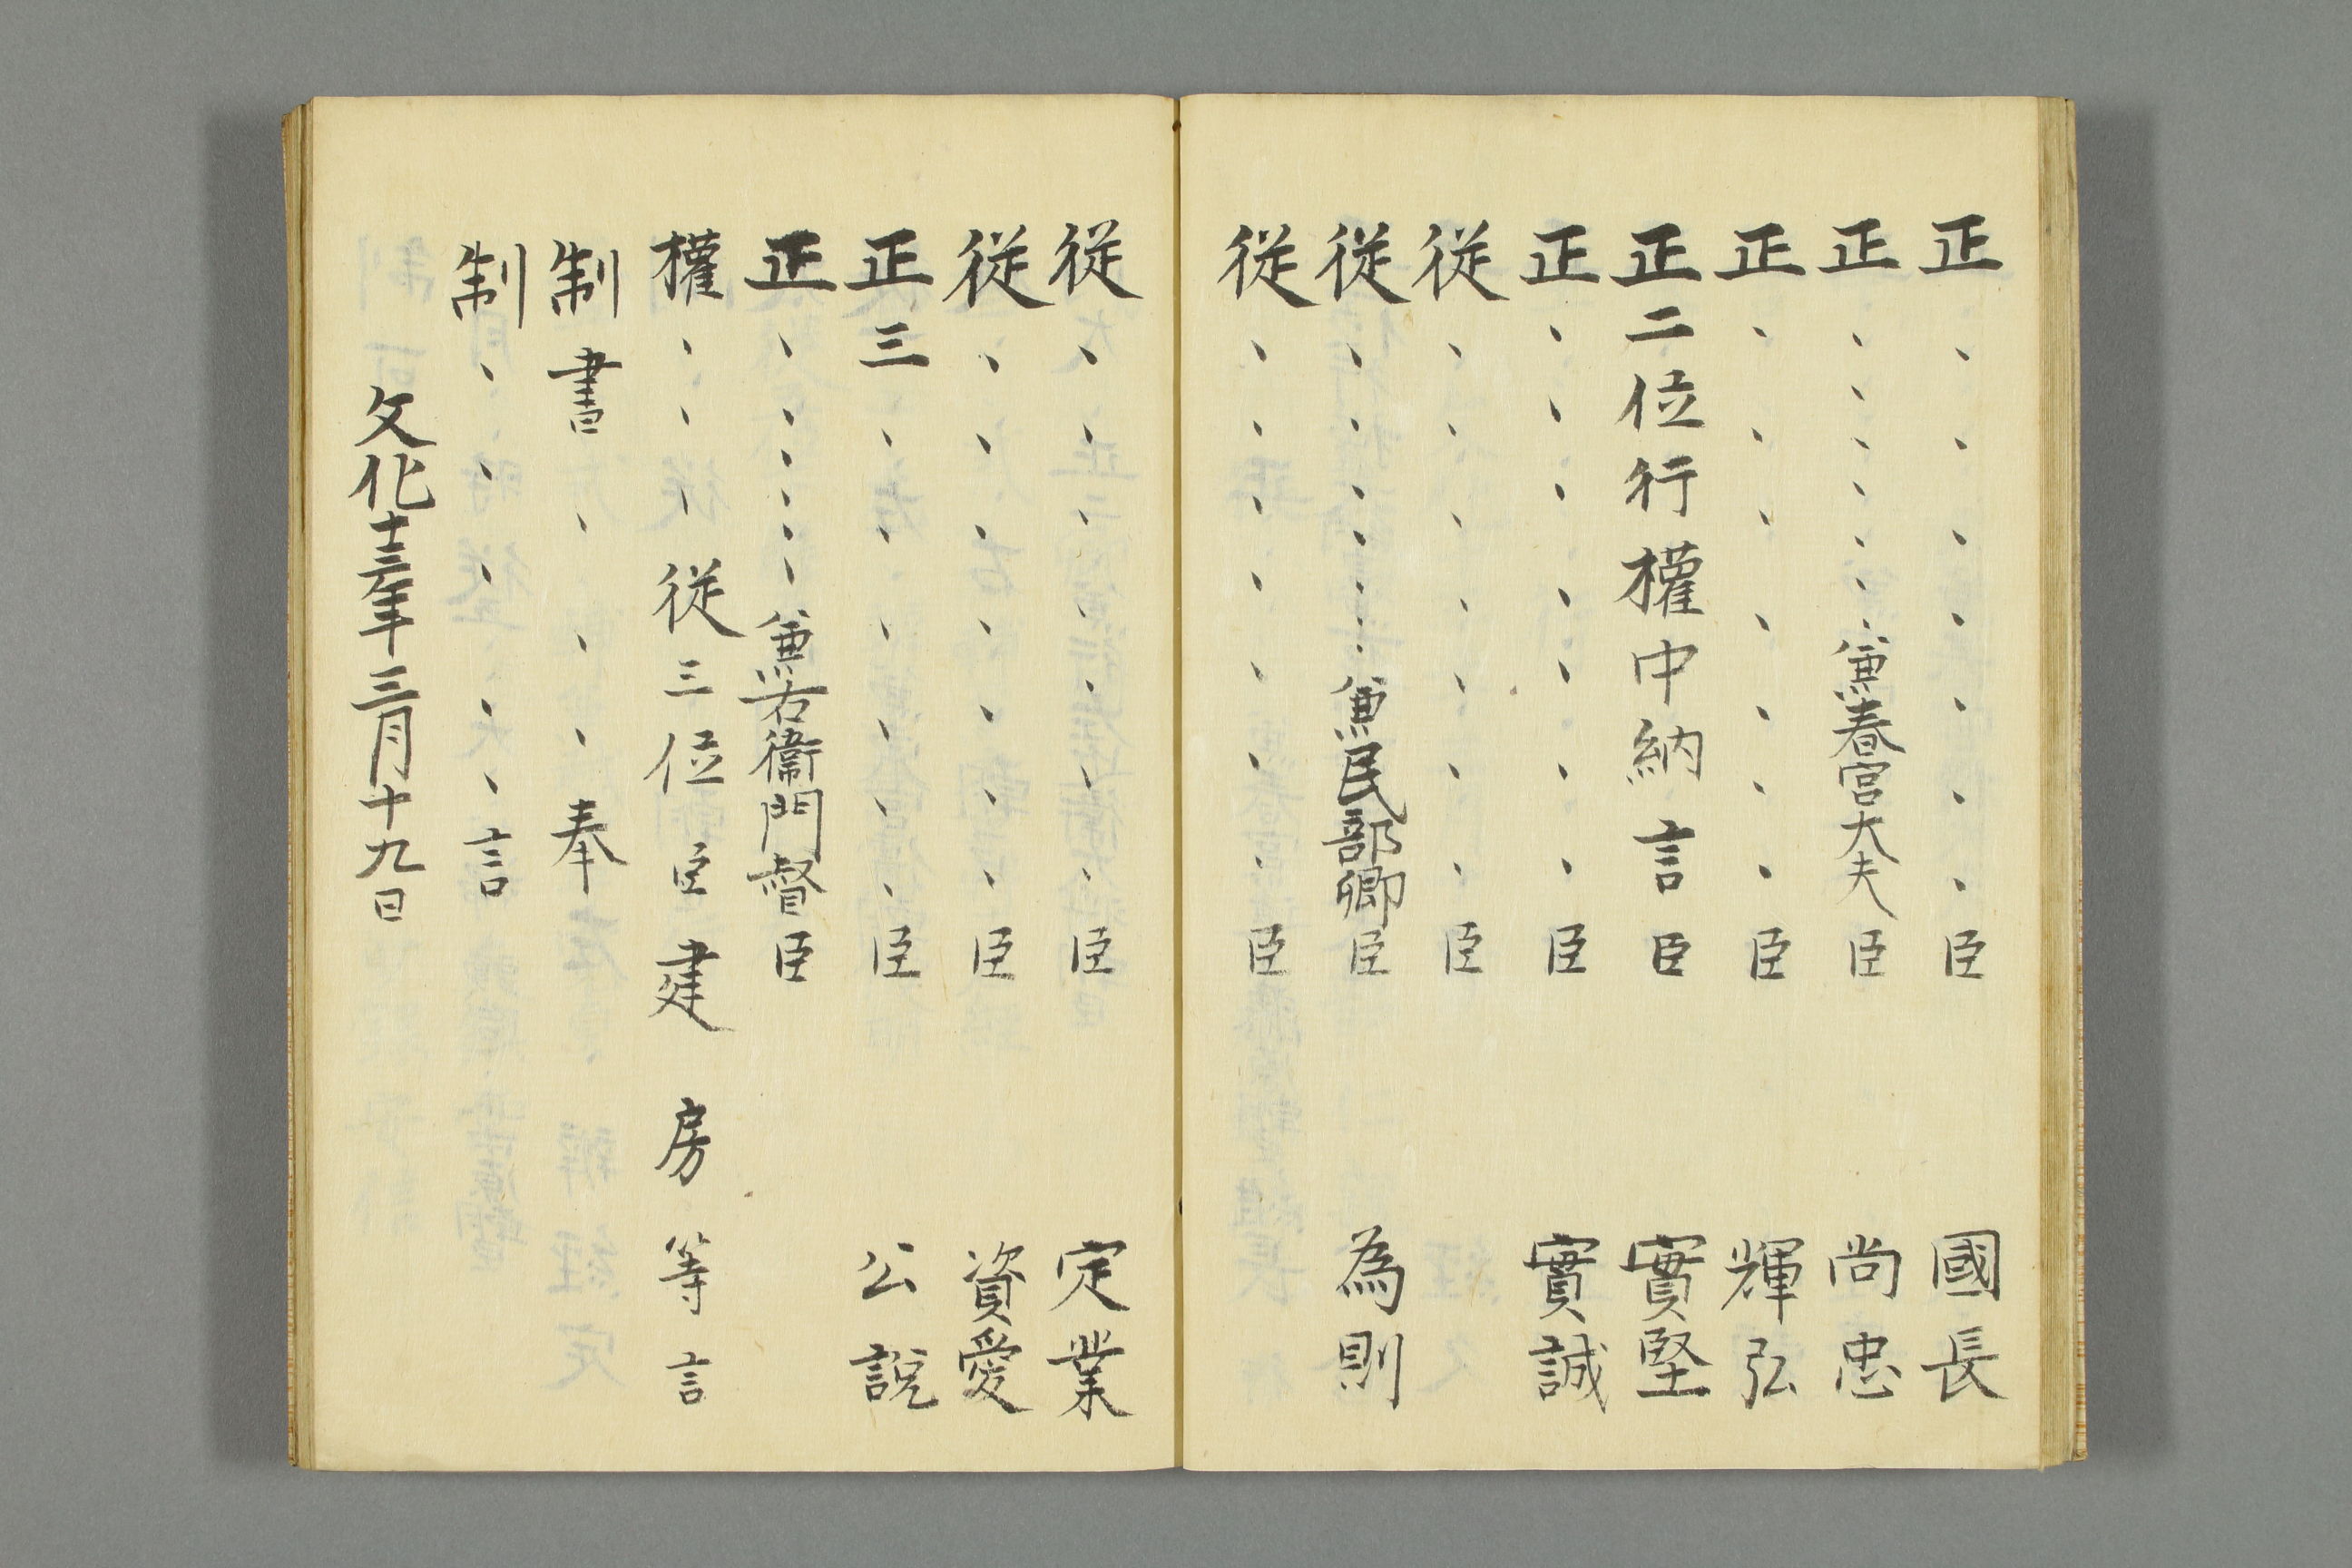 正、、、、、、、臣 國長
正、、、、、、、兼春宮大夫臣 尚忠
正、、、、、、、臣 輝弘
正二位行權中納言臣 實堅
正、、、、、、、臣 實誠
従、、、、、、、臣
従、、、、、、兼民部卿臣 為則
従、、、、、、、臣
従、、、、、、、臣 定業
従、、、、、、、臣 資愛
正三、、、、、、臣 公説
正、、、、、、兼右衞門督臣
權、、、従三位臣建房等言
制書、、、奉
制、、、、、言
文化十三年三月十九日